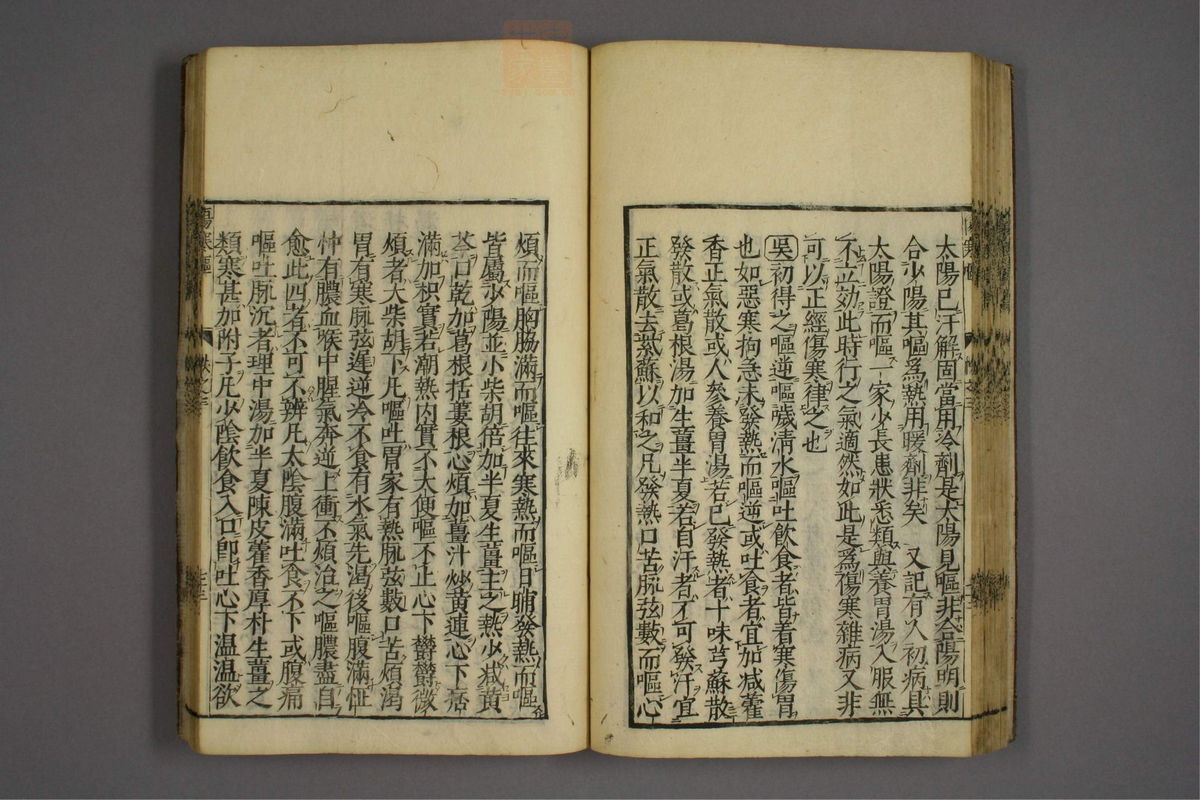 太陽已汗解固當用冷劑是太陽見嘔非合陽明則
合少陽其嘔爲熱用暖劑非矣 又記有人初病具
太陽證而嘔一家少長患狀悉類與養胃湯八服無
不立効此時行之氣適然如此是爲傷寒雜病又非
可以正經傷寒律之也
吳初得之嘔逆嘔穢淸水嘔吐飲食者皆着寒傷胃
也如惡寒拘急未發熱而嘔逆或吐食者宜加减藿
香正氣散或人參養胃湯若已發熱者十味芎蘇散
發散或葛根湯加生薑半夏若自汗者不可發汗宜
正氣散去紫蘇以和之凡發熱口苦脉弦數而嘔心
煩而嘔胸脇滿而嘔往來寒熱而嘔日晡發熱而嘔
皆屬少陽並小柴胡倍加半夏生薑主之熱少减黃
芩口乾加葛根括蔞根心煩加薑汁炒黃連心下痞
滿加枳實若潮熱内實不大便嘔不止心下欝欝微
煩者大柴胡下凡嘔吐胃家有熱脉弦數口苦煩渴
胃有寒脉弦遲逆冷不食有水氣先渴後嘔腹滿怔
忡有膿血喉中腥氣奔逆上衝不煩治之嘔膿盡自
愈此四者不可不辨凡太陰腹滿吐食不下或腹痛
嘔吐脉沉者理中湯加半夏陳皮藿香厚朴生薑之
類寒甚加附子凡少陰飲食入口即吐心下温温欲
傷寒嘔
七十三